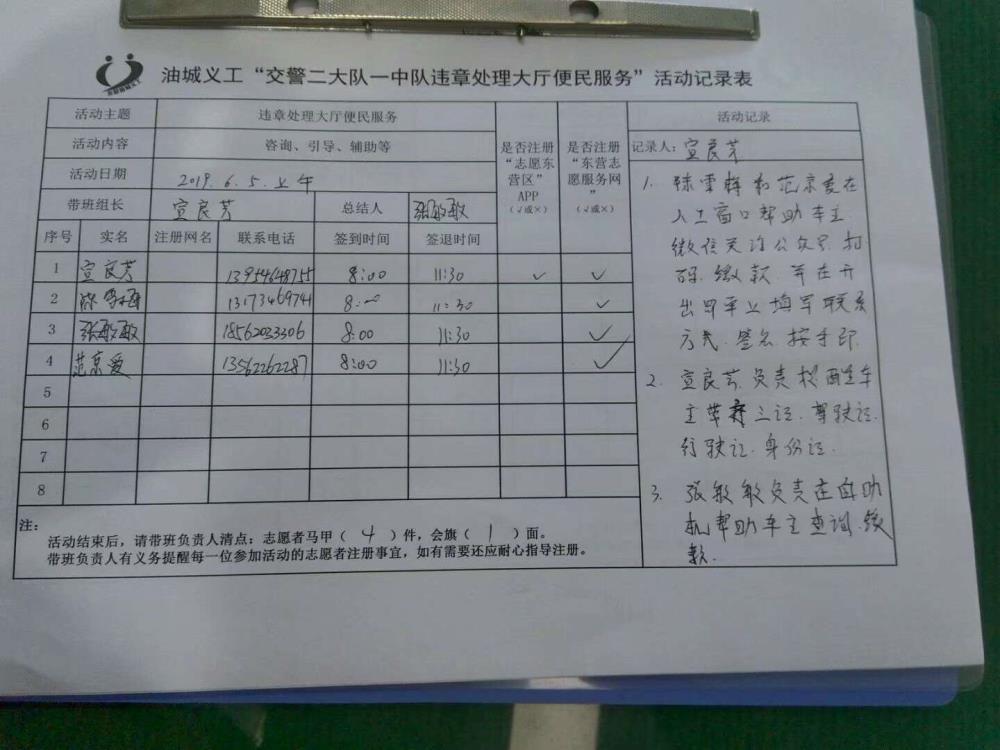 油城义工“交警二大队一中队违章处理大厅便民服务”活动记录表
活动主题 违章处理大厅便民服务
活动内容 咨询、引导、辅助等
活动日期 2019.6.5.上午
带班组长 宣良芳 总结人 张敏敏
是否注册
“志愿东
营区”
APP
(√或×)
是否注册
“东营志
愿服务网
”
(√或×)
序号 实名 注册网名 联系电话 签到时间 签退时间
1 宣良芳 13954648755 8:00 11:30 ✓ ✓
2 13173469741 8:00 11:30 ✓
3 张敏敏 18562023306 8:00 11:30 ✓
4 范京爱 13562262287 8:00 11:30 ✓
5
6
7
8
注:
活动结束后,请带班负责人清点:志愿者马甲( 4 )件,会旗( 1 )面。
带班负责人有义务提醒每一位参加活动的志愿者注册事宜,如有需要还应耐心指导注册。
活动记录
记录人:宣良芳
1. 和范京爱在
人工窗口帮助车主
微信关注公众号.扫
码.缴款.并在开
出罚单上填写联系
方式.签名.按手印.
2. 宣良芳.负责提醒车
主带齐三证.驾驶证.
行驶证.身份证.
3. 张敏敏负责在自助
机帮助车主查询.缴
款.